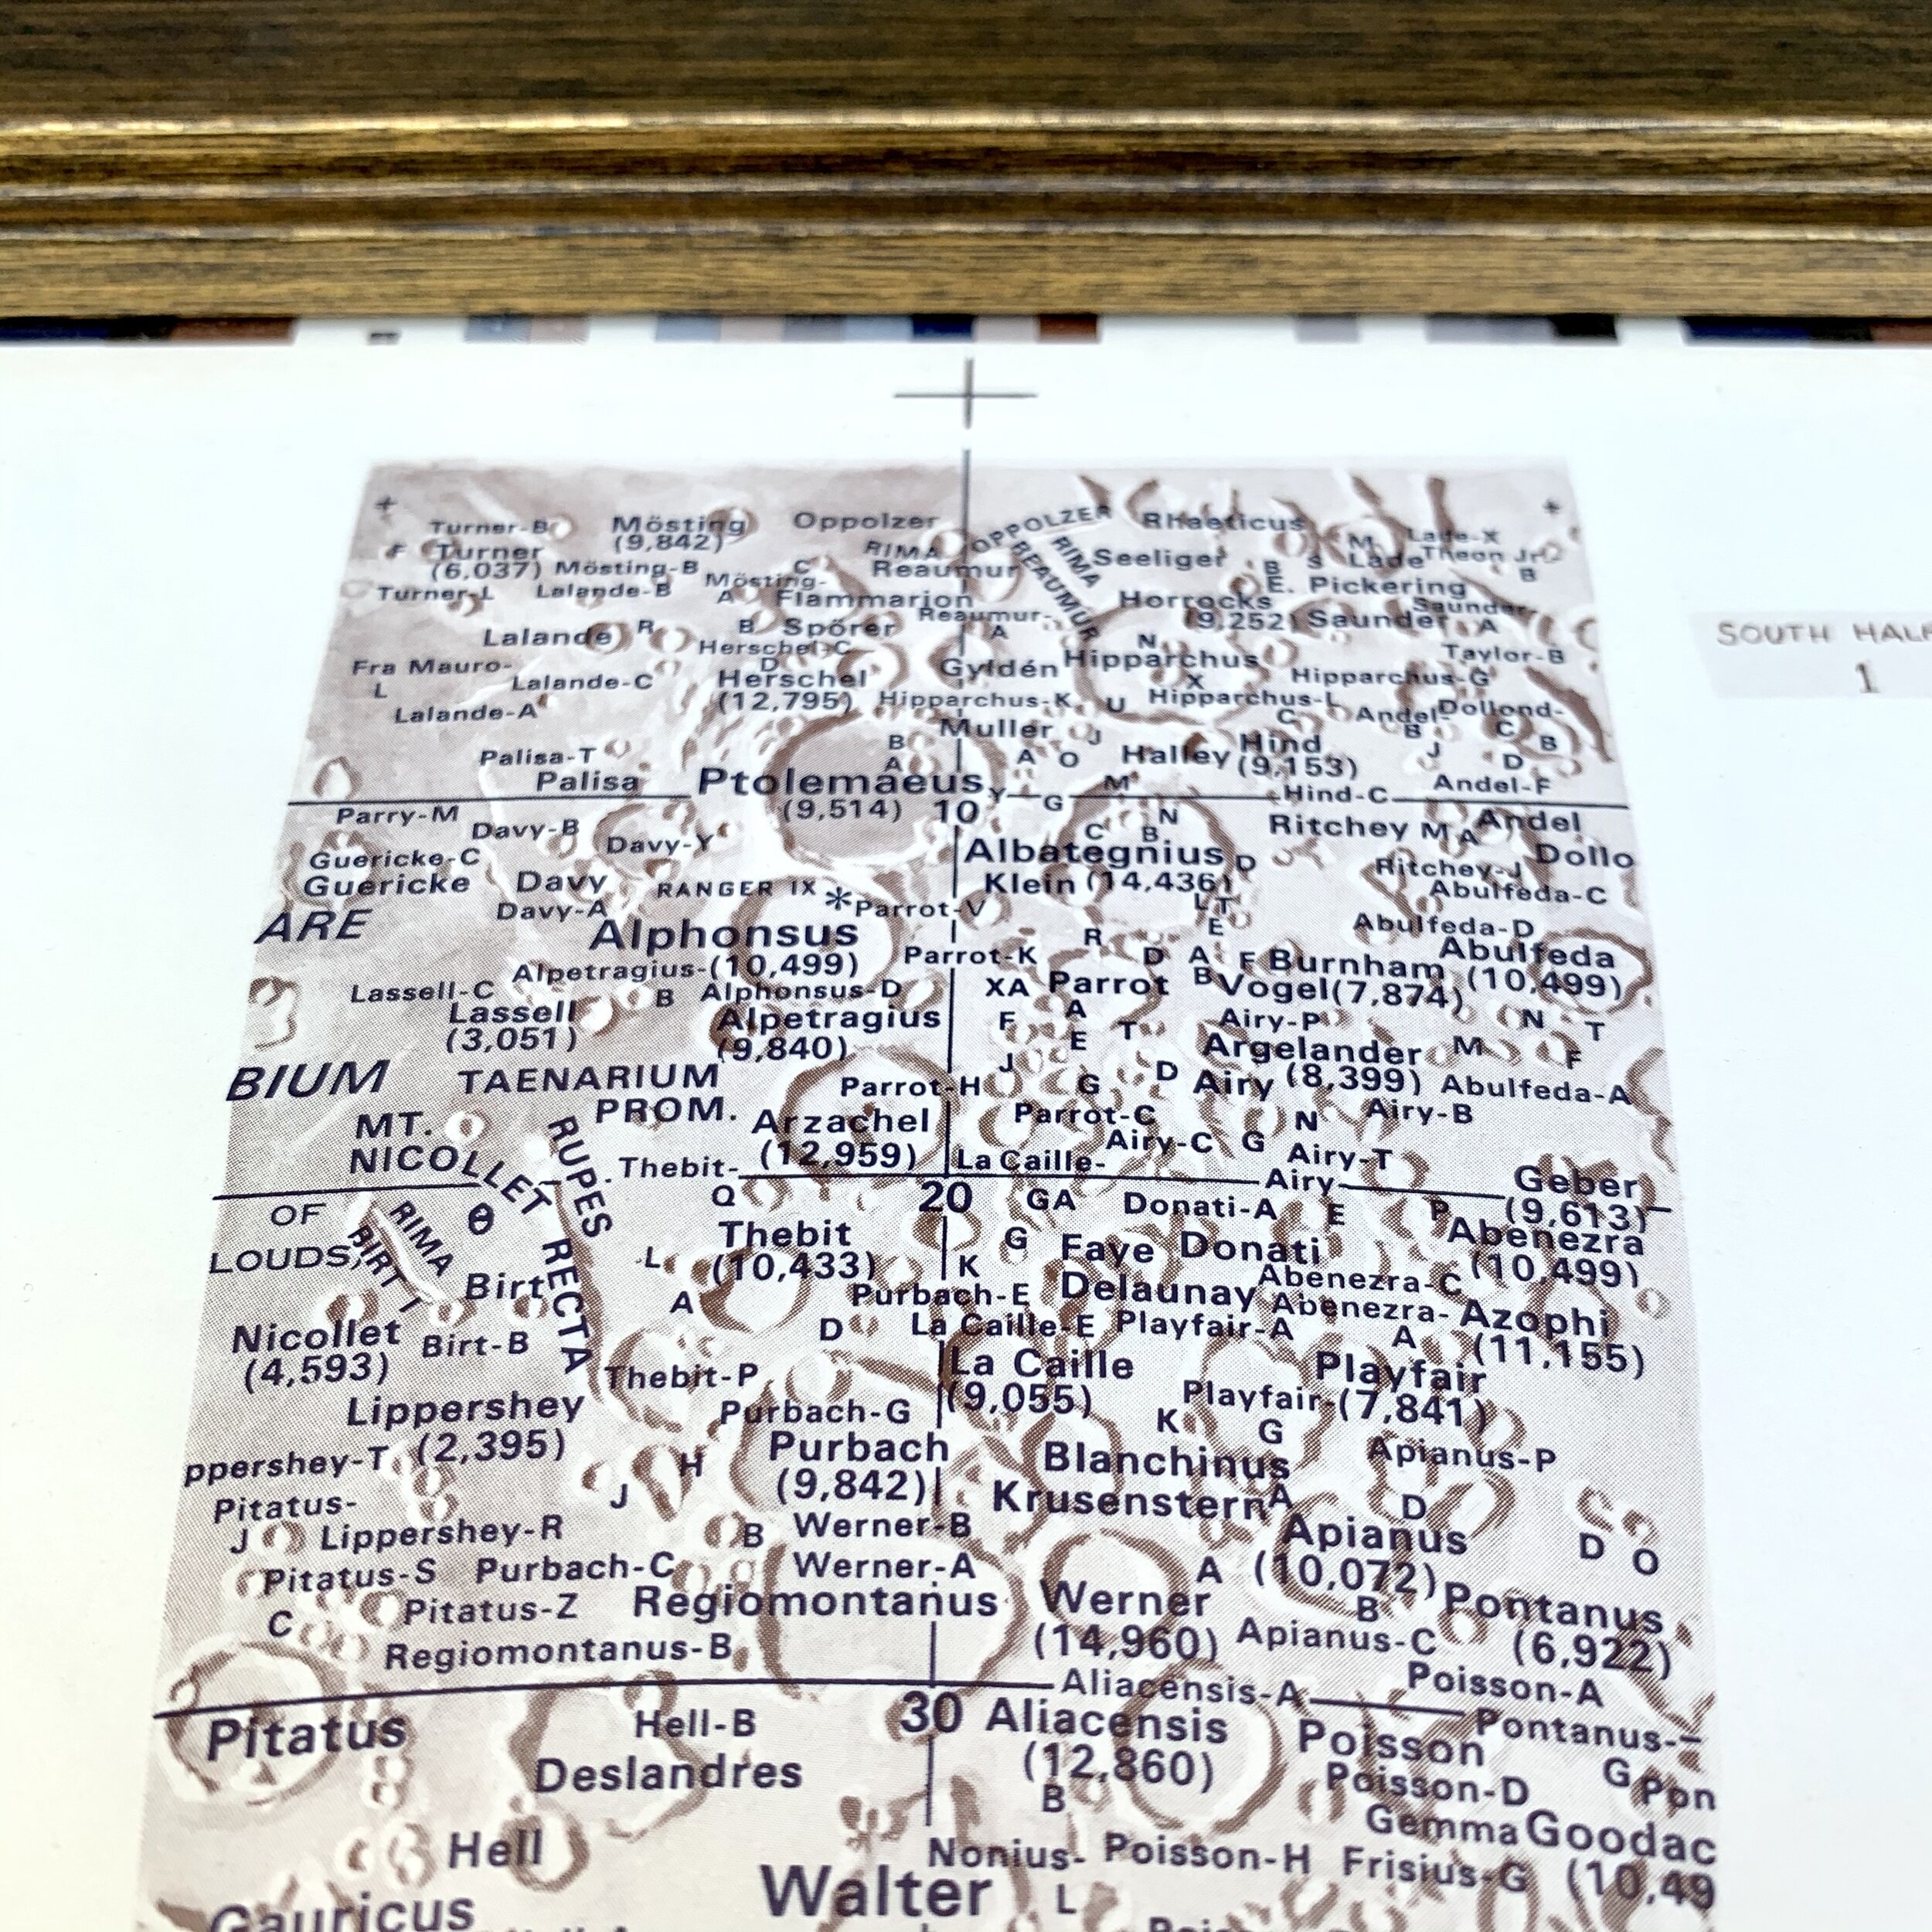 Turner-B Mösting Oppolzer OPPOLZER Rhaeticus Lade-X
F Turner (9,842) RIMA RIMA M Lade Theon Jr
(6,037) Mösting-B C Reaumur REAUMUR Seeliger B S B
Turner-L Lalande-B Mösting- E. Pickering
A Flammarion Horrocks Saunder-
Reaumur- (9,252) Saunder A
Lalande R B Spörer A N
Herschel-C Taylor-B
Fra Mauro- D Gyldén Hipparchus
L Lalande-C Herschel X Hipparchus-G
(12,795) Hipparchus-K U Hipparchus-L
Lalande-A C Andel- Dollond-
Muller J B C B
Palisa-T B A A O Halley Hind J D
Palisa Ptolemaeus M (9,153) Andel-F
Y G Hind-C
Parry-M (9,514) 10 N Andel
Davy-B C B Ritchey M A
Guericke-C Davy-Y Albategnius D Ritchey-J Dollo
Guericke Davy RANGER IX Klein (14,436) Abulfeda-C
Davy-A Parrot-V L T
ARE E Abulfeda-D
Alphonsus R
Parrot-K D A F Burnham Abulfeda
Alpetragius- (10,499) (10,499)
Lassell-C B Alphonsus-D XA Parrot B Vogel (7,874)
Lassell Alpetragius F A Airy-P N T
(3,051) (9,840) E T Argelander M F
BIUM TAENARIUM J
Parrot-H G D Airy (8,399) Abulfeda-A
PROM. Arzachel Parrot-C N Airy-B
MT. Airy-C G
NICOLLET RUPES Thebit- (12,959) La Caille- Airy-T
Airy- Geber
Q 20 GA Donati-A E P (9,613)
OF RIMA Thebit Abenezra
LOUDS, BIRT I L (10,433) G Faye Donati (10,499)
K Abenezra-C
Birt RECTA A Purbach-E Delaunay Abenezra- Azophi
Nicollet Birt-B D La Caille-E Playfair-A A
(4,593) (11,155)
Thebit-P La Caille Playfair
(9,055) Playfair- (7,841)
Lippershey Purbach-G K G
(2,395) Purbach Blanchinus Apianus-P
ppershey-T H (9,842)
Pitatus- J Krusenstern A D
J Lippershey-R B Werner-B Apianus D O
Pitatus-S Purbach-C Werner-A A (10,072)
Pitatus-Z Regiomontanus Werner B Pontanus
C (14,960) Apianus-C (6,922)
Regiomontanus-B
Aliacensis-A Poisson-A
Pitatus Hell-B 30 Aliacensis Poisson Pontanus-
Deslandres (12,860) Poisson-D G Pon
B Gemma Goodac
Hell Nonius- Poisson-H Frisius-G (10,49
Walter L
Gauricus
SOUTH HALF
1